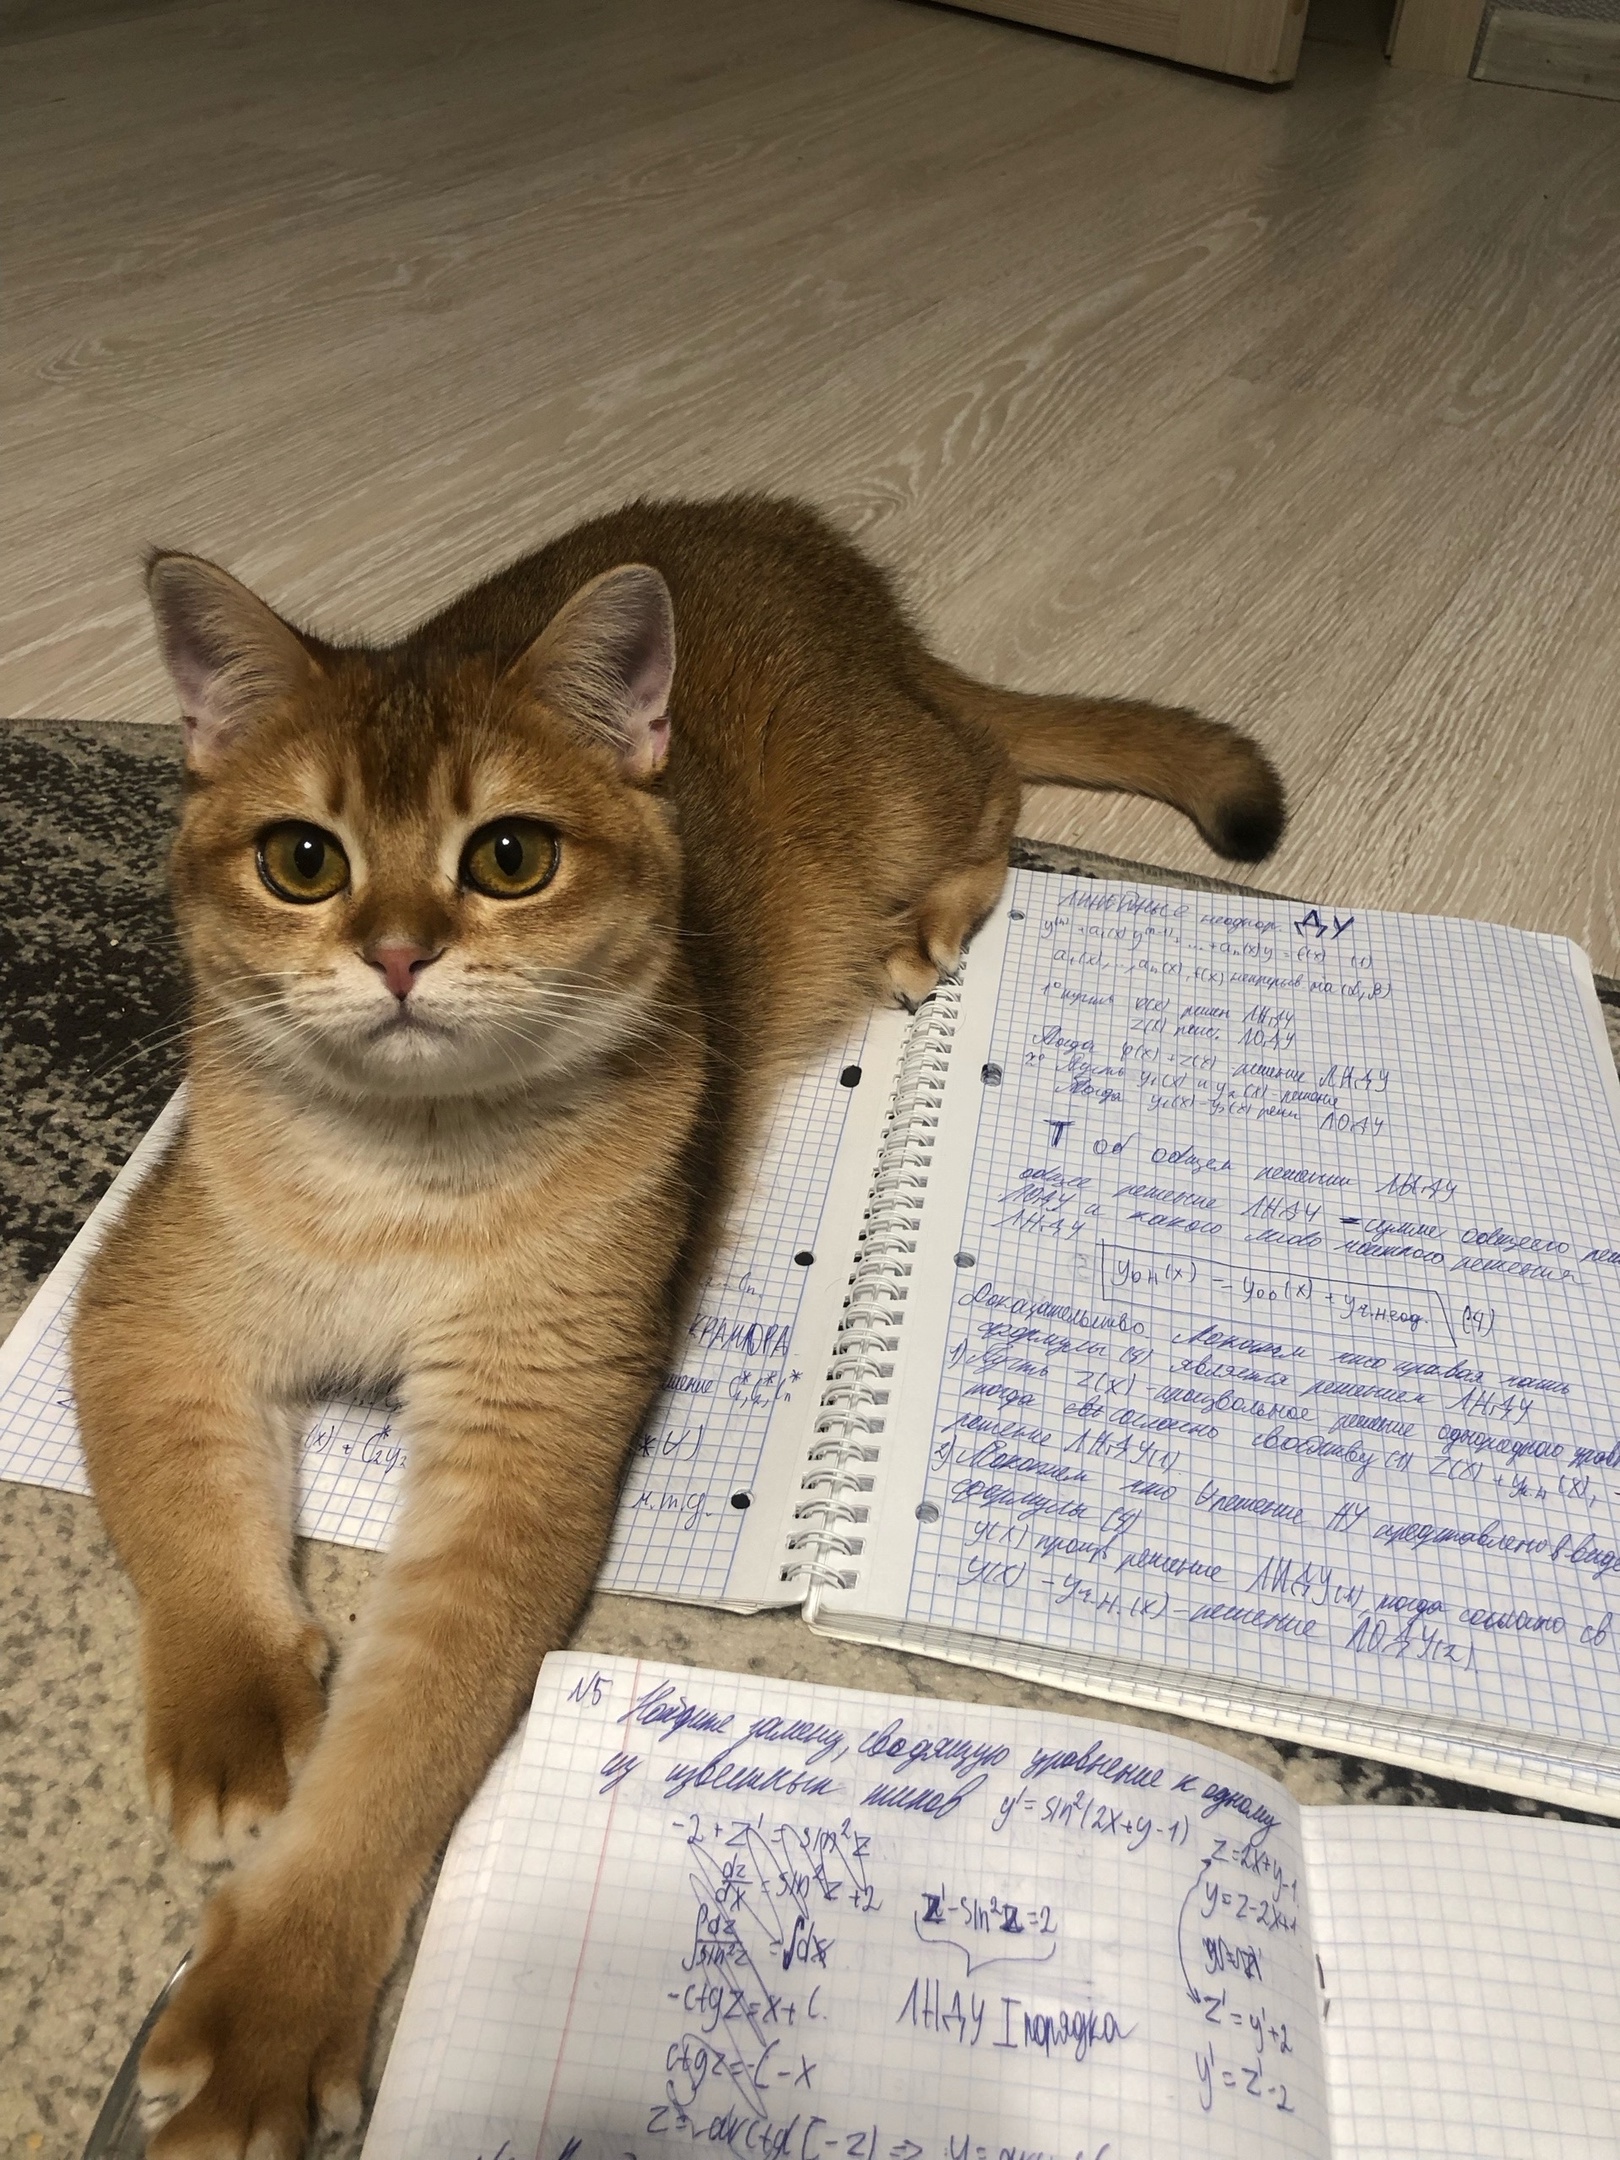 Линейные неоднор. ДУ
y⁽ⁿ⁾ + a₁(x) y⁽ⁿ⁻¹⁾ + ... + aₙ(x)y = f(x) (1)
a₁(x), ..., aₙ(x), f(x) непрерыв на (α, β)
1° пусть φ(x) решен ЛНДУ
z(x) реш. ЛОДУ
Тогда φ(x) + z(x) решение ЛНДУ
2° Пусть y₁(x) и y₂(x) - решение
Тогда y₁(x) - y₂(x) реш ЛОДУ
Т об общем решении ЛНДУ
общее решение ЛНДУ = сумме общего
ЛОДУ и какого либо частного решения
ЛНДУ
yон(x) = yоо(x) + yч.неод. (4)
Доказательство Покажем что правая часть
формулы (4) является решением ЛНДУ
1) Пусть z(x) - произвольное решение однородного
тогда согласно свойству (1) z(x) + yч.н(x), -
решение ЛНДУ(1).
2) Покажем что ∀ решение НУ представлено в виде
формулы (4)
y(x) произв решение ЛНДУ(1), тогда согласно св
y(x) - yч.н.(x) - решение ЛОДУ(2)
Cₙ.
КРАМЕРА
C₁*, C₂*, Cₙ*
(x) + C₂*y₂ *∀)
ч.т.д.
N5 Найдите замену, сводящую уравнение к одному
из известных типов y' = sin²(2x+y-1)
-2 + z' = sin²z
dz/dx = sin²z + 2
∫dz/sin²z = ∫dx
-ctgz = x + C.
ctgz = -C - x
z = arcctg(-z) => y =
z' - sin²z = 2
ЛНДУ I порядка
z = 2x+y-1
y = z-2x+1
z' = y'+2
y' = z'-2